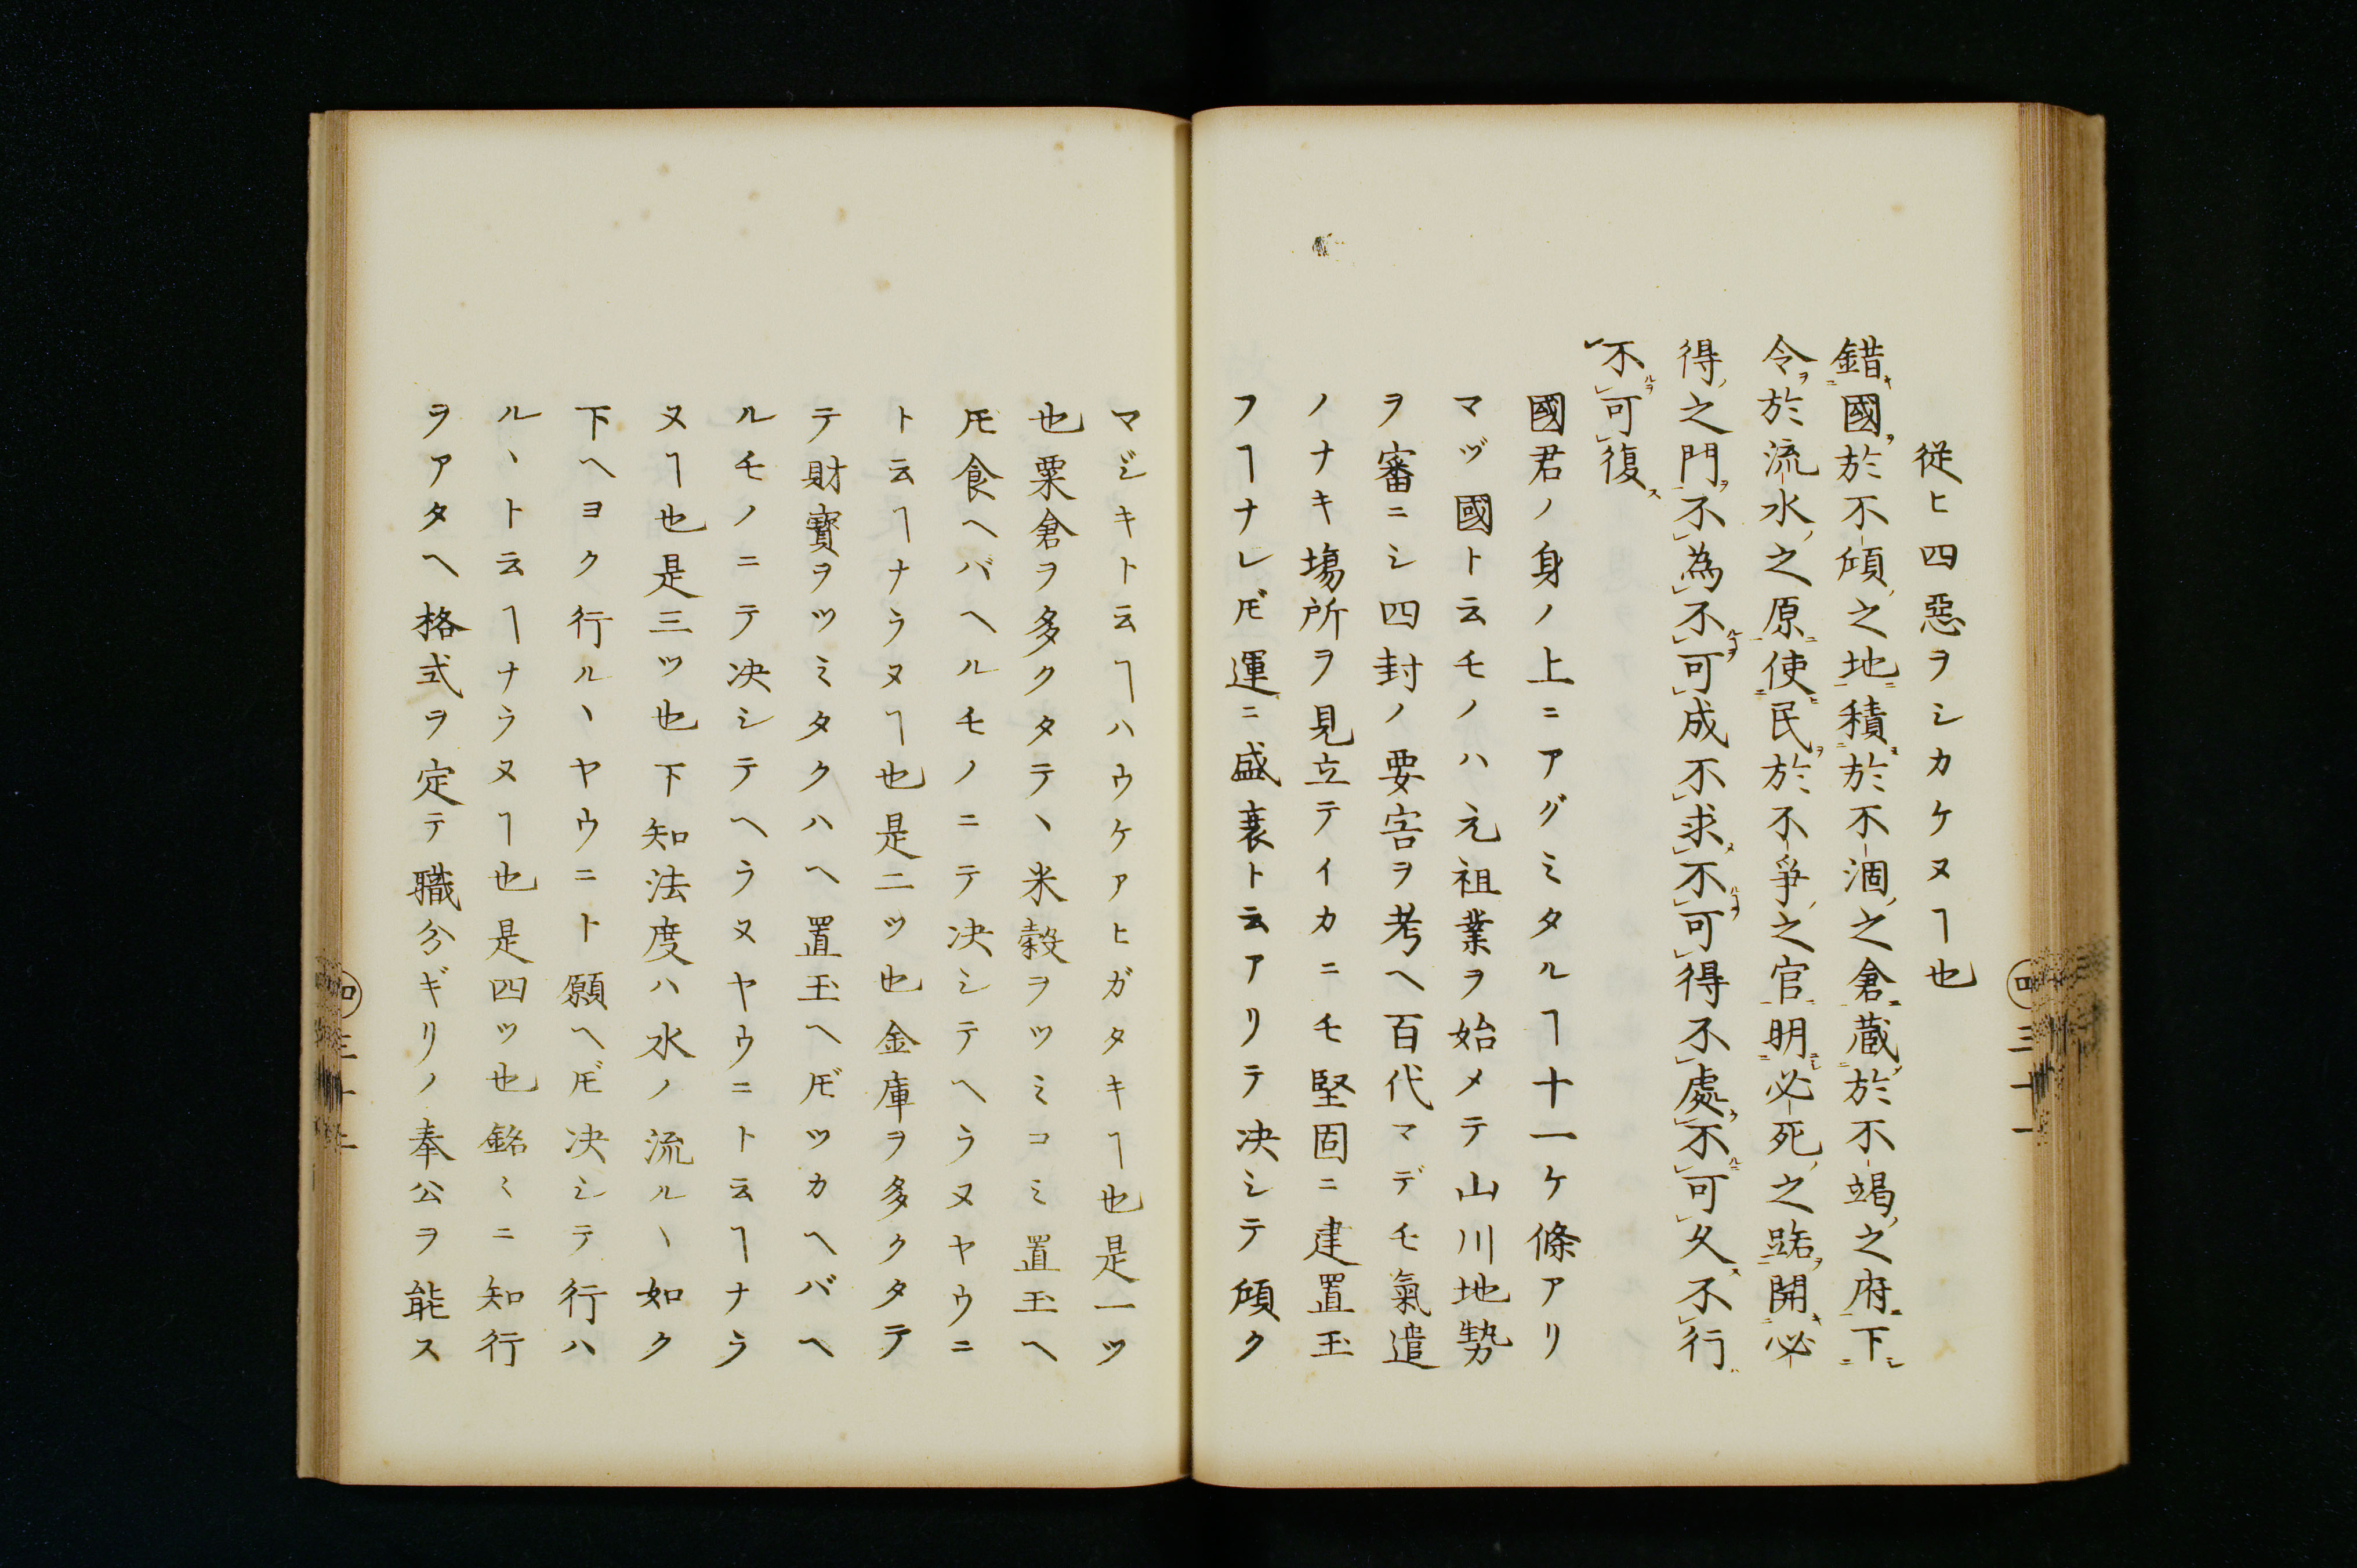 從ヒ四惡ヲシカケヌヿ也
錯國於不傾之地積於不涸之倉蔵於不竭之府下
令於流水之原使民於不爭之官明必死之路開必
得之門不為不可成不求不可得不處不可久不行
不可復
國君ノ身ノ上ニアグミタルヿ十一ケ條アリ
マヅ國ト云モノハ元祖業ヲ始メテ山川地勢
ヲ審ニシ四封ノ要害ヲ考ヘ百代マデモ氣遣
ノナキ塲所ヲ見立テイカニモ堅固ニ建置玉
フヿナレ𪜈運ニ盛衰ト云アリテ决シテ傾ク
マジキト云ヿハウケアヒガタキヿ也是一ツ
也粟倉ヲ多クタテヽ米穀ヲツミコミ置玉ヘ
𪜈食ヘバヘルモノニテ决シテヘラヌヤウニ
ト云ヿナラヌヿ也是二ツ也金庫ヲ多クタテ
テ財寳ヲツミタクハヘ置玉ヘ𪜈ツカヘバヘ
ルモノニテ决シテヘラヌヤウニト云ヿナラ
ヌヿ也是三ツ也下知法度ハ水ノ流ルヽ如ク
下ヘヨク行ルヽヤウニト願ヘ𪜈决シテ行ハ
ルヽト云ヿナラヌヿ也是四ツ也銘〻ニ知行
ヲアタヘ格式ヲ定テ職分ギリノ奉公ヲ能ス
四 三十一